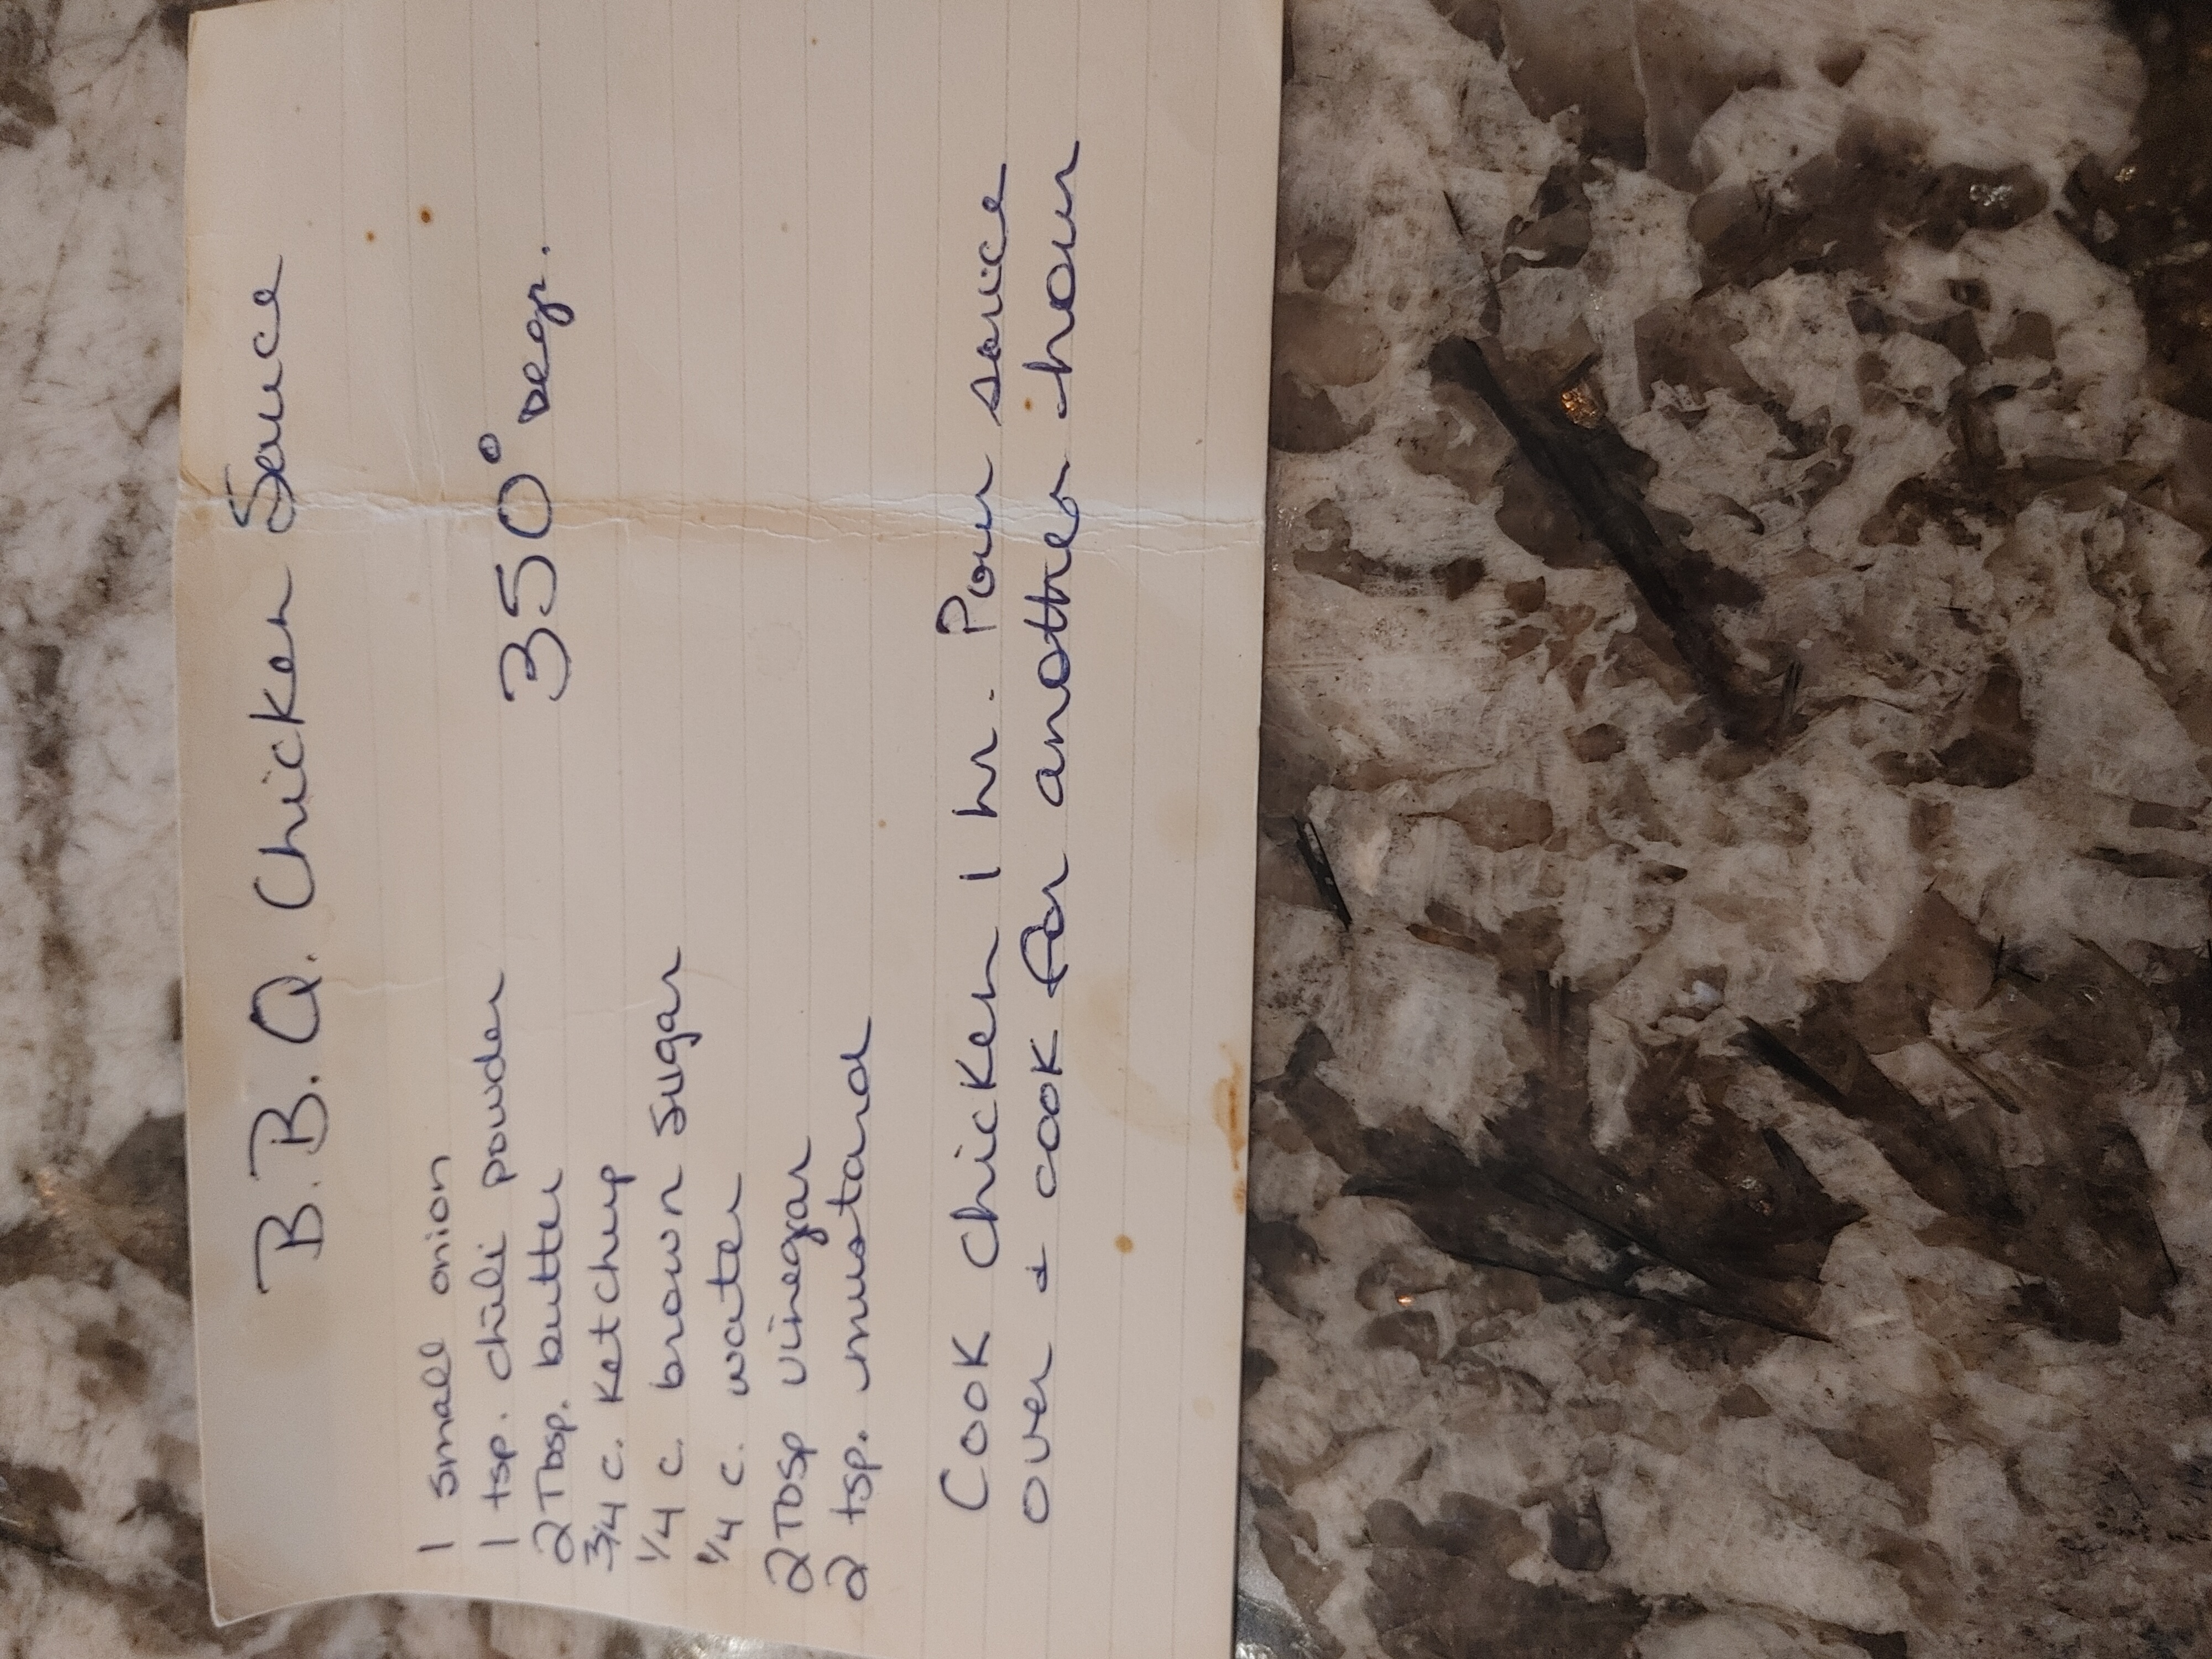 B.B.Q. Chicken Sauce
1 small onion
1 tsp. chili powder
350° Degr.
2 Tbsp. butter
3/4 c. Ketchup
1/4 c. brown sugar
1/4 c. water
2 Tbsp vinegar
2 tsp. mustard
Cook Chicken 1 hr. Pour sauce
over & cook for another hour